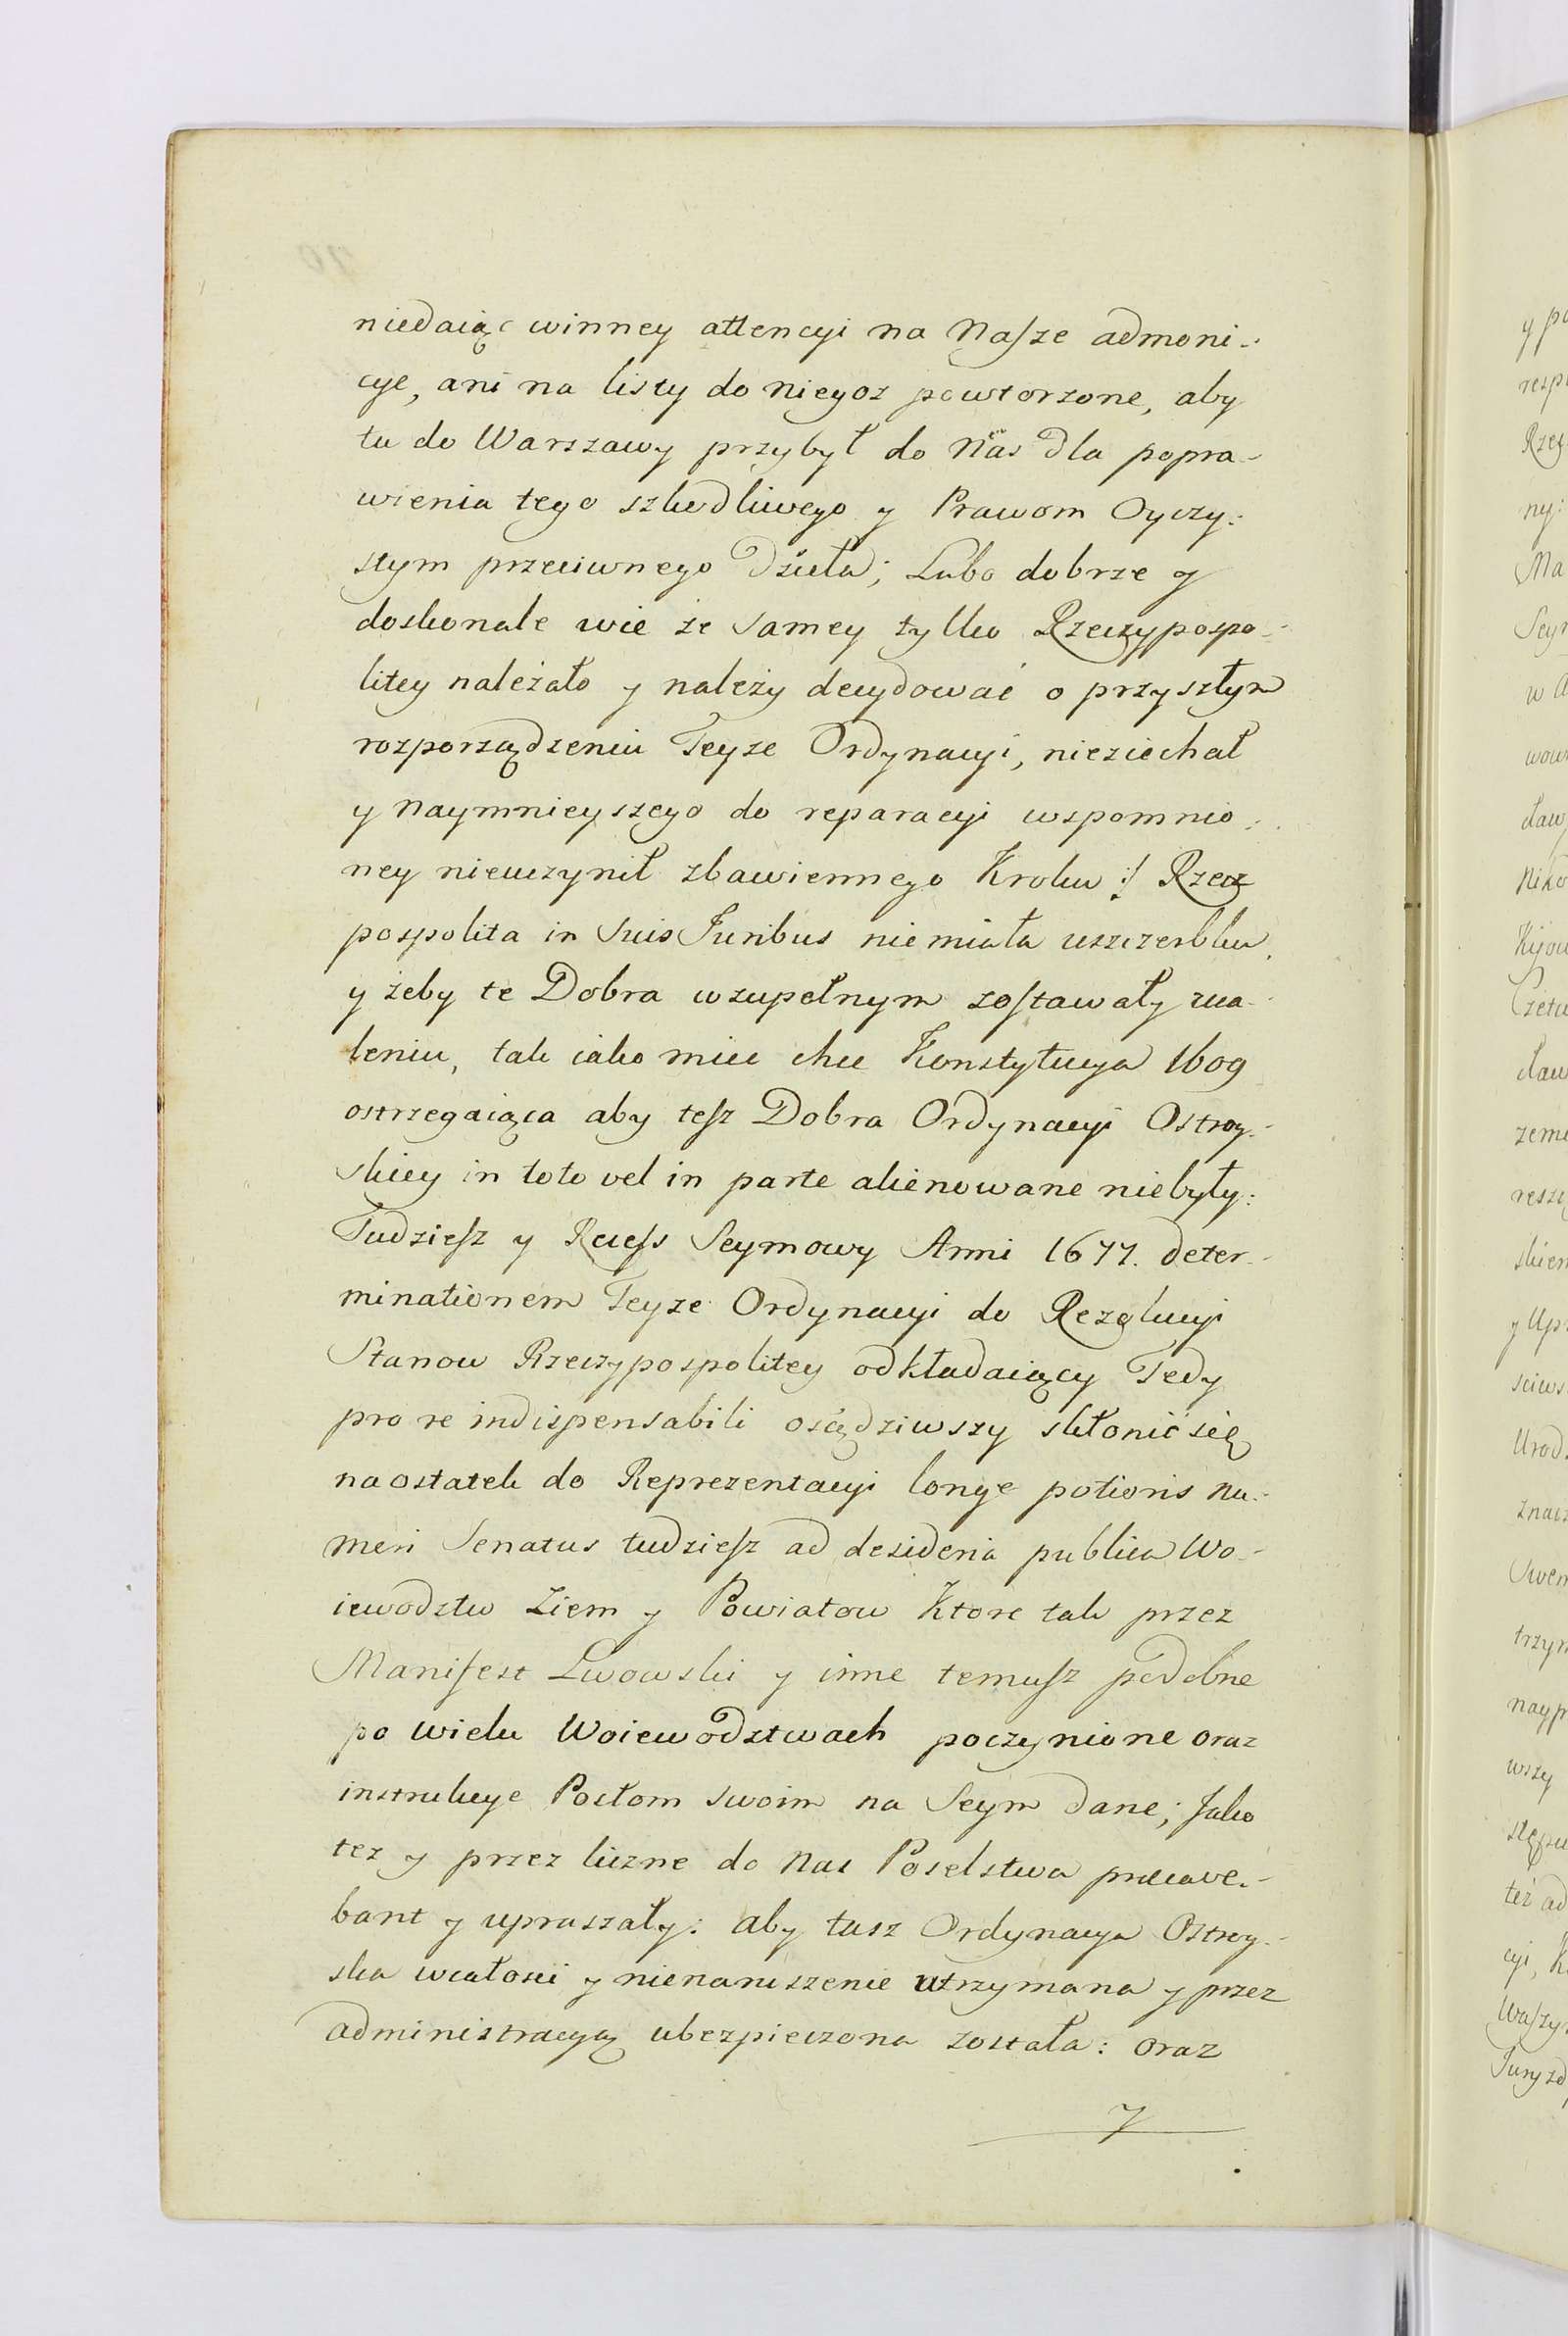 niedaiąc winney attencyi na Nasze admoni-
cye, ani na listy do niegoz powtorzone, aby
tu do Warszawy przybył do Nas dla popra-
wienia tego szkodliwego y Prawom Oyczy-
stym przeciwnego Dzieła; Lubo dobrze y
doskonale wie że samey tylko Rzeczypospo-
litey należało y należy decydować o przyszłym
rozporządzeniu Teyze Ordynacyi, nieziechał
y naymnieyszego do reparacyi wspomnio-
ney nieuczynił zbawiennego Kroku :/ Rzecz
pospolita in Suis Juribus niemiała uszczerbku,
y żeby te Dobra wzupełnym zostawały zca-
leniu, tak iako miec chce Konstytucya 1609
ostrzegaiąca aby tesz Dobra Ordynacyi Ostrog-
skiey in toto vel in parte alienowane niebyły:
Tudziesz y Recess Seymowy Anni 1677. deter-
minationem Teyze Ordynacyi do Rezolucyi
Stanow Rzeczypospolitey odkładaiący Tedy
pro re indispensabili osądziwszy skłonić się
naostatek do Reprezentacyi longe potioris nu-
meri Senatus tudziesz ad desideria publica Wo-
iewodztw Ziem y Powiatow Ktore tak przez
Manifest Lwowski y inne temusz podobne
po wielu Woiewodztwach poczynione oraz
instrukcye Posłom swoim na Seym dane; Jako
tez y przez liczne do Nas Poselstwa precave-
bant y upraszały: aby tasz Ordynacya Ostrog-
ska wcałosci y nienaruszenie utrzymana y przez
administracyą ubezpieczona została: oraz
y
y po
resp
Rzecz
ny:
Ma
Sey
w
wow
daw
Niko
Kijow
Czetw
daw
zeme
resz
skiem
y Up
sciws
Urod
znacz
Swem
trzym
nayp
wszy
stępu
też ad
cyi, K
Waszy
Juryzd